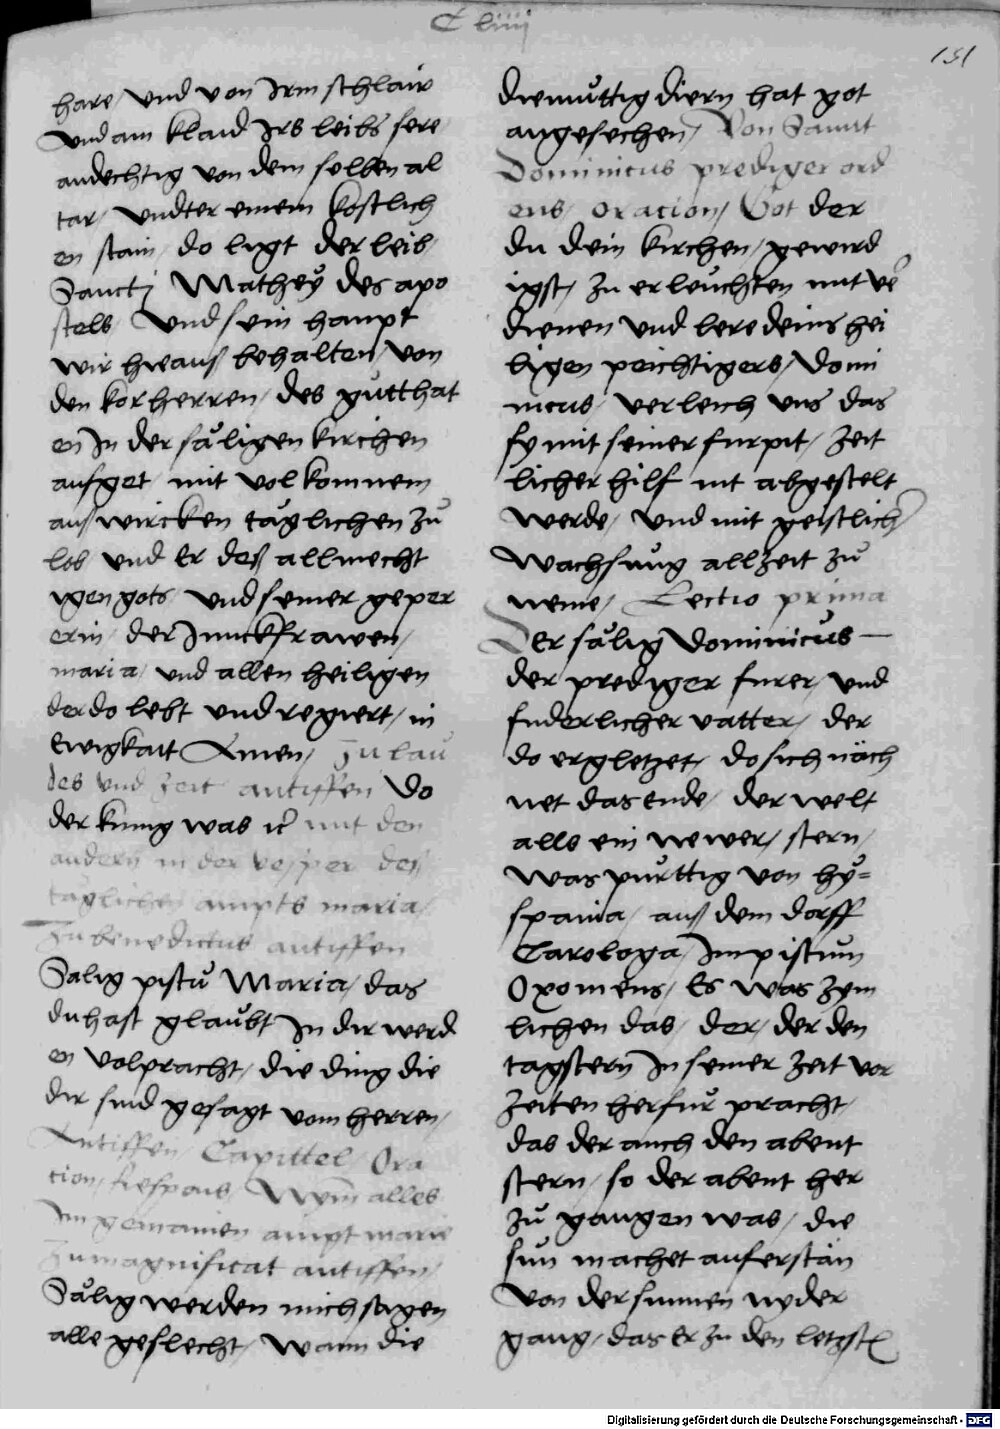 C liiij
151
hare / vnd von Irm schlair
vnd am klaid Irs leibs sere
andechtig von dem selben al
tar / vndter einem kostlich
en stain / do ligt der leib /
Sancti Mathey des apo
stels / vnd sein haupt
wir hieauß behalten / von
den korherren / des gutthat
en In der säligen kirchen
aufget / mit volkomnem
außwircken täglichen zů
lob vnd Er deß allmecht
igen gots vnd seiner geper
erin / der Junckfrawen /
maria / vnd allen heiligen
der do lebt vnd regiert / in
Ewigkait Amen / Zu lau
des vnd zeit antiffen Do
der kunig was ic mit den
andern in der vesper des
täglichen ampts maria /
Zu benedictus antiffen
Sälig pistu Maria / das
du hast glaubt In dir werd
en volpracht / die ding die
dir sind gesagt vom herren /
Antiffen / Capittel / Ora
tion / Respons / Vym alles
Im gemainen ampt marie
Zu magnificat antiffen /
Sälig werden mich sagen
alle geslecht / wann die
diemuttig diern hat got
angesechen / Von Sannt
Dominicus prediger ord
ens / oracion / Got der
du dein kirchen / gewird
igst / zu erleuchten mit ver
dienen vnd lere deins hei
ligen peichtigers / Domi
nicus / verleich vns das
sy mit seiner furpit / zeit
licher hilf nit abgestelt
werde / vnd mit geistlicher
wachsung allzeit zů
neme / Lectio prima
Der sälig Dominicus —
der prediger furer / vnd
fuderlicher vatter / der
do ergletzet / do sich näch
net das ende / der welt
als ein newer / stern /
was purttig von hy=
spania / auß dem dorff
Carologa / Im pistum
Oxomens / Es was zym
lichen das / der / der den
tagstern In seiner zeit vor
zeiten herfur pracht /
das der auch den abent
stern / so der abent her
zů gangen was / die
sun machet auferstän
von der sunnen nyder
gang / das Er zu den letzst
Digitalisierung gefördert durch die Deutsche Forschungsgemeinschaft - DFG